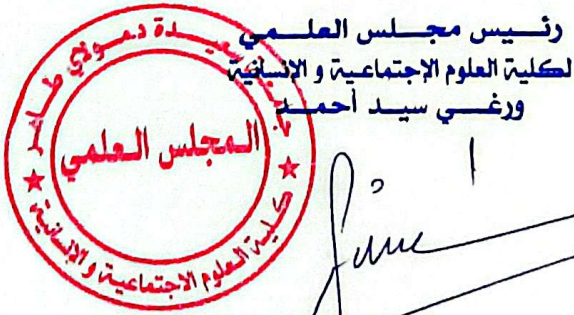 رئيس مجلس العلمي
لكلية العلوم الإجتماعية و الإنسانية
ورغي سيد أحمد
جامعة سعيدة د.مولاي طاهر
المجلس العلمي
كلية العلوم الاجتماعية و الإنسانية